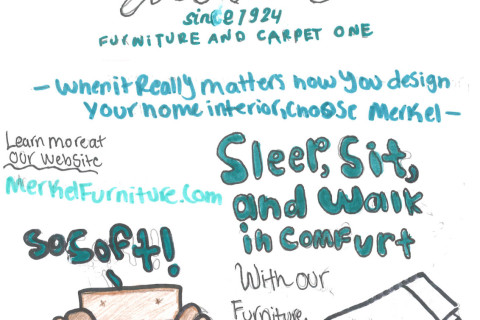 since 1924
FURNITURE AND CARPET ONE
- when it Really matters how You design
Your home interior, choose Merkel -
Learn more at
our website
MerkelFurniture.com
Sleep, Sit,
and Walk
in Comfurt
so soft!
With our
Furniture.